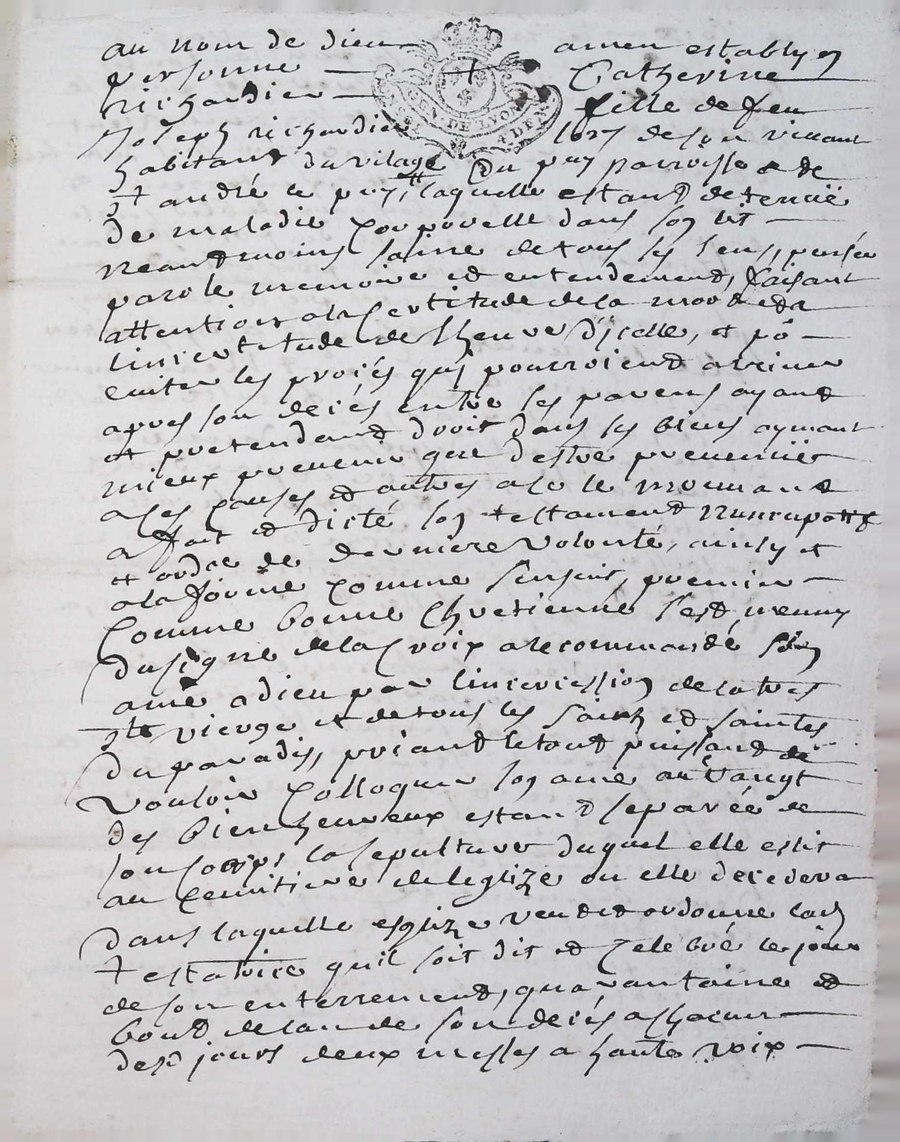 au nom de dieu amen establye
personne Catherine
richardier fille de feu
Joseph richardier lors de son vivant
habitant du vilage du puy parroisse de
st andré le puy, laquelle estant detenuë
de maladie corporelle dans son lit
neantmoins saine de tous ses sens, pensée
parole memoire et entendement, faisant
attention a la certitude de la mort et a
lincertitude de lheure dicelle, et po
eviter les procés qui pourroient arriver
apres son decés entre ses parens ayant
et pretendant droit dans ses biens aymant
mieux prevenir que destre prevenüe
a ces causes et autres a le mouvant
a fait et dicté son testament nuncupatif
et ordre de derniere volonté, ainsy et
a la forme comme sensuit, premier
comme bonne Chretienne sest munny
du signe de la Croix a recommandé son
ame a dieu par lintercession de la tres
ste vierge et de tous les saints et saintes
du paradis, priant le tout puissant de
vouloir colloquer son ame au rangt
des bien heureux estant separée de
son corps la sepulture duquel elle eslit
au cemitiere de leglize ou elle decedera
dans laquelle esglize veut et ordonne lad
testatrice quil soit dit et celebré le jour
de son enterrement, quarantaine et
bout de lan de son decés a chacun
desd jours deux messes a haute voix
GEN. DE LYON